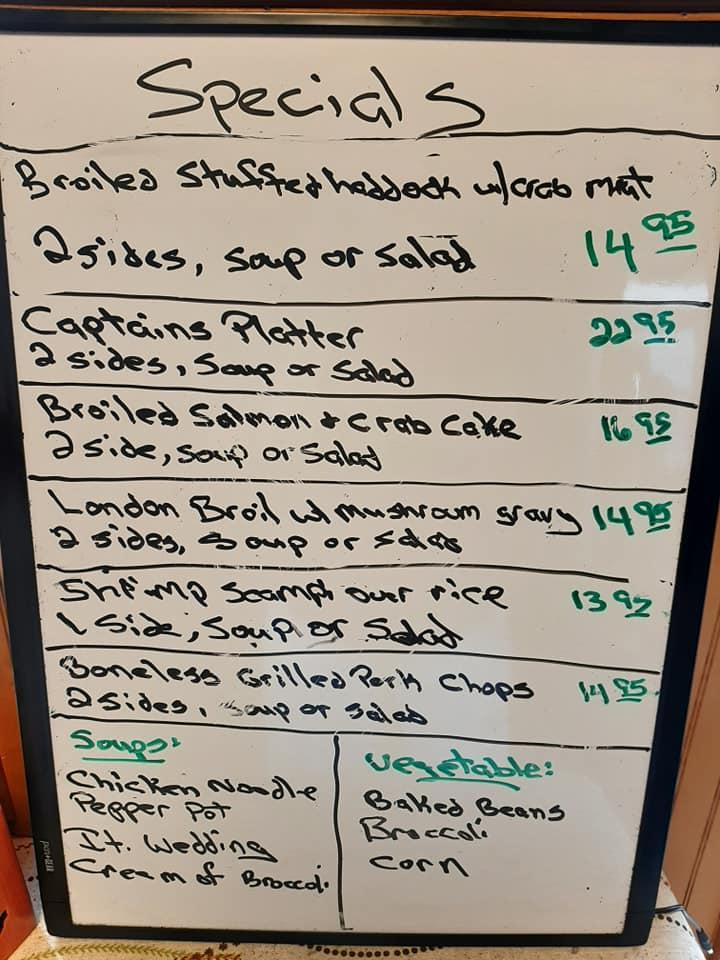 Specials
Broiled Stuffed haddock w/crab meat
2 sides, soup or salad 14 95
Captains Platter 22 95
2 sides, Soup or Salad
Broiled Salmon + Crab Cake 16 95
2 side, soup or Salad
London Broil w/ mushroom gravy 14 95
2 sides, soup or salad
Shrimp Scampi over rice 13 95
1 Side, Soup or Salad
Boneless Grilled Pork Chops 14 95
2 Sides, soup or salad
Soups:
Chicken Noodle
Pepper Pot
It. Wedding
Cream of Broccoli
Vegetable:
Baked Beans
Broccoli
Corn